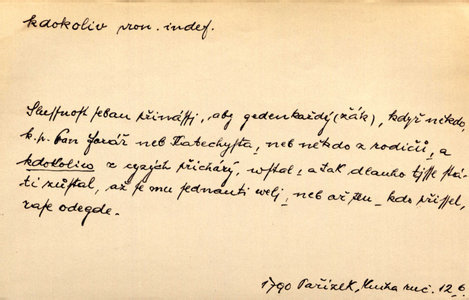 kdokoliv pron. indef.
Slussnost sebau přinássý, aby gedenkaždý (žák), když někdo,
k. p. Pan Farář neb Katechysta, neb někdo z rodičů, a
kdokoliw z cyzých přichází, wstal, a tak dlauho tisse stá-
ti zůstal, až se mu sednauti welj, neb až ten, kdo přissel,
zase odegde.
1790 Pařízek, Kniha ruč. 126